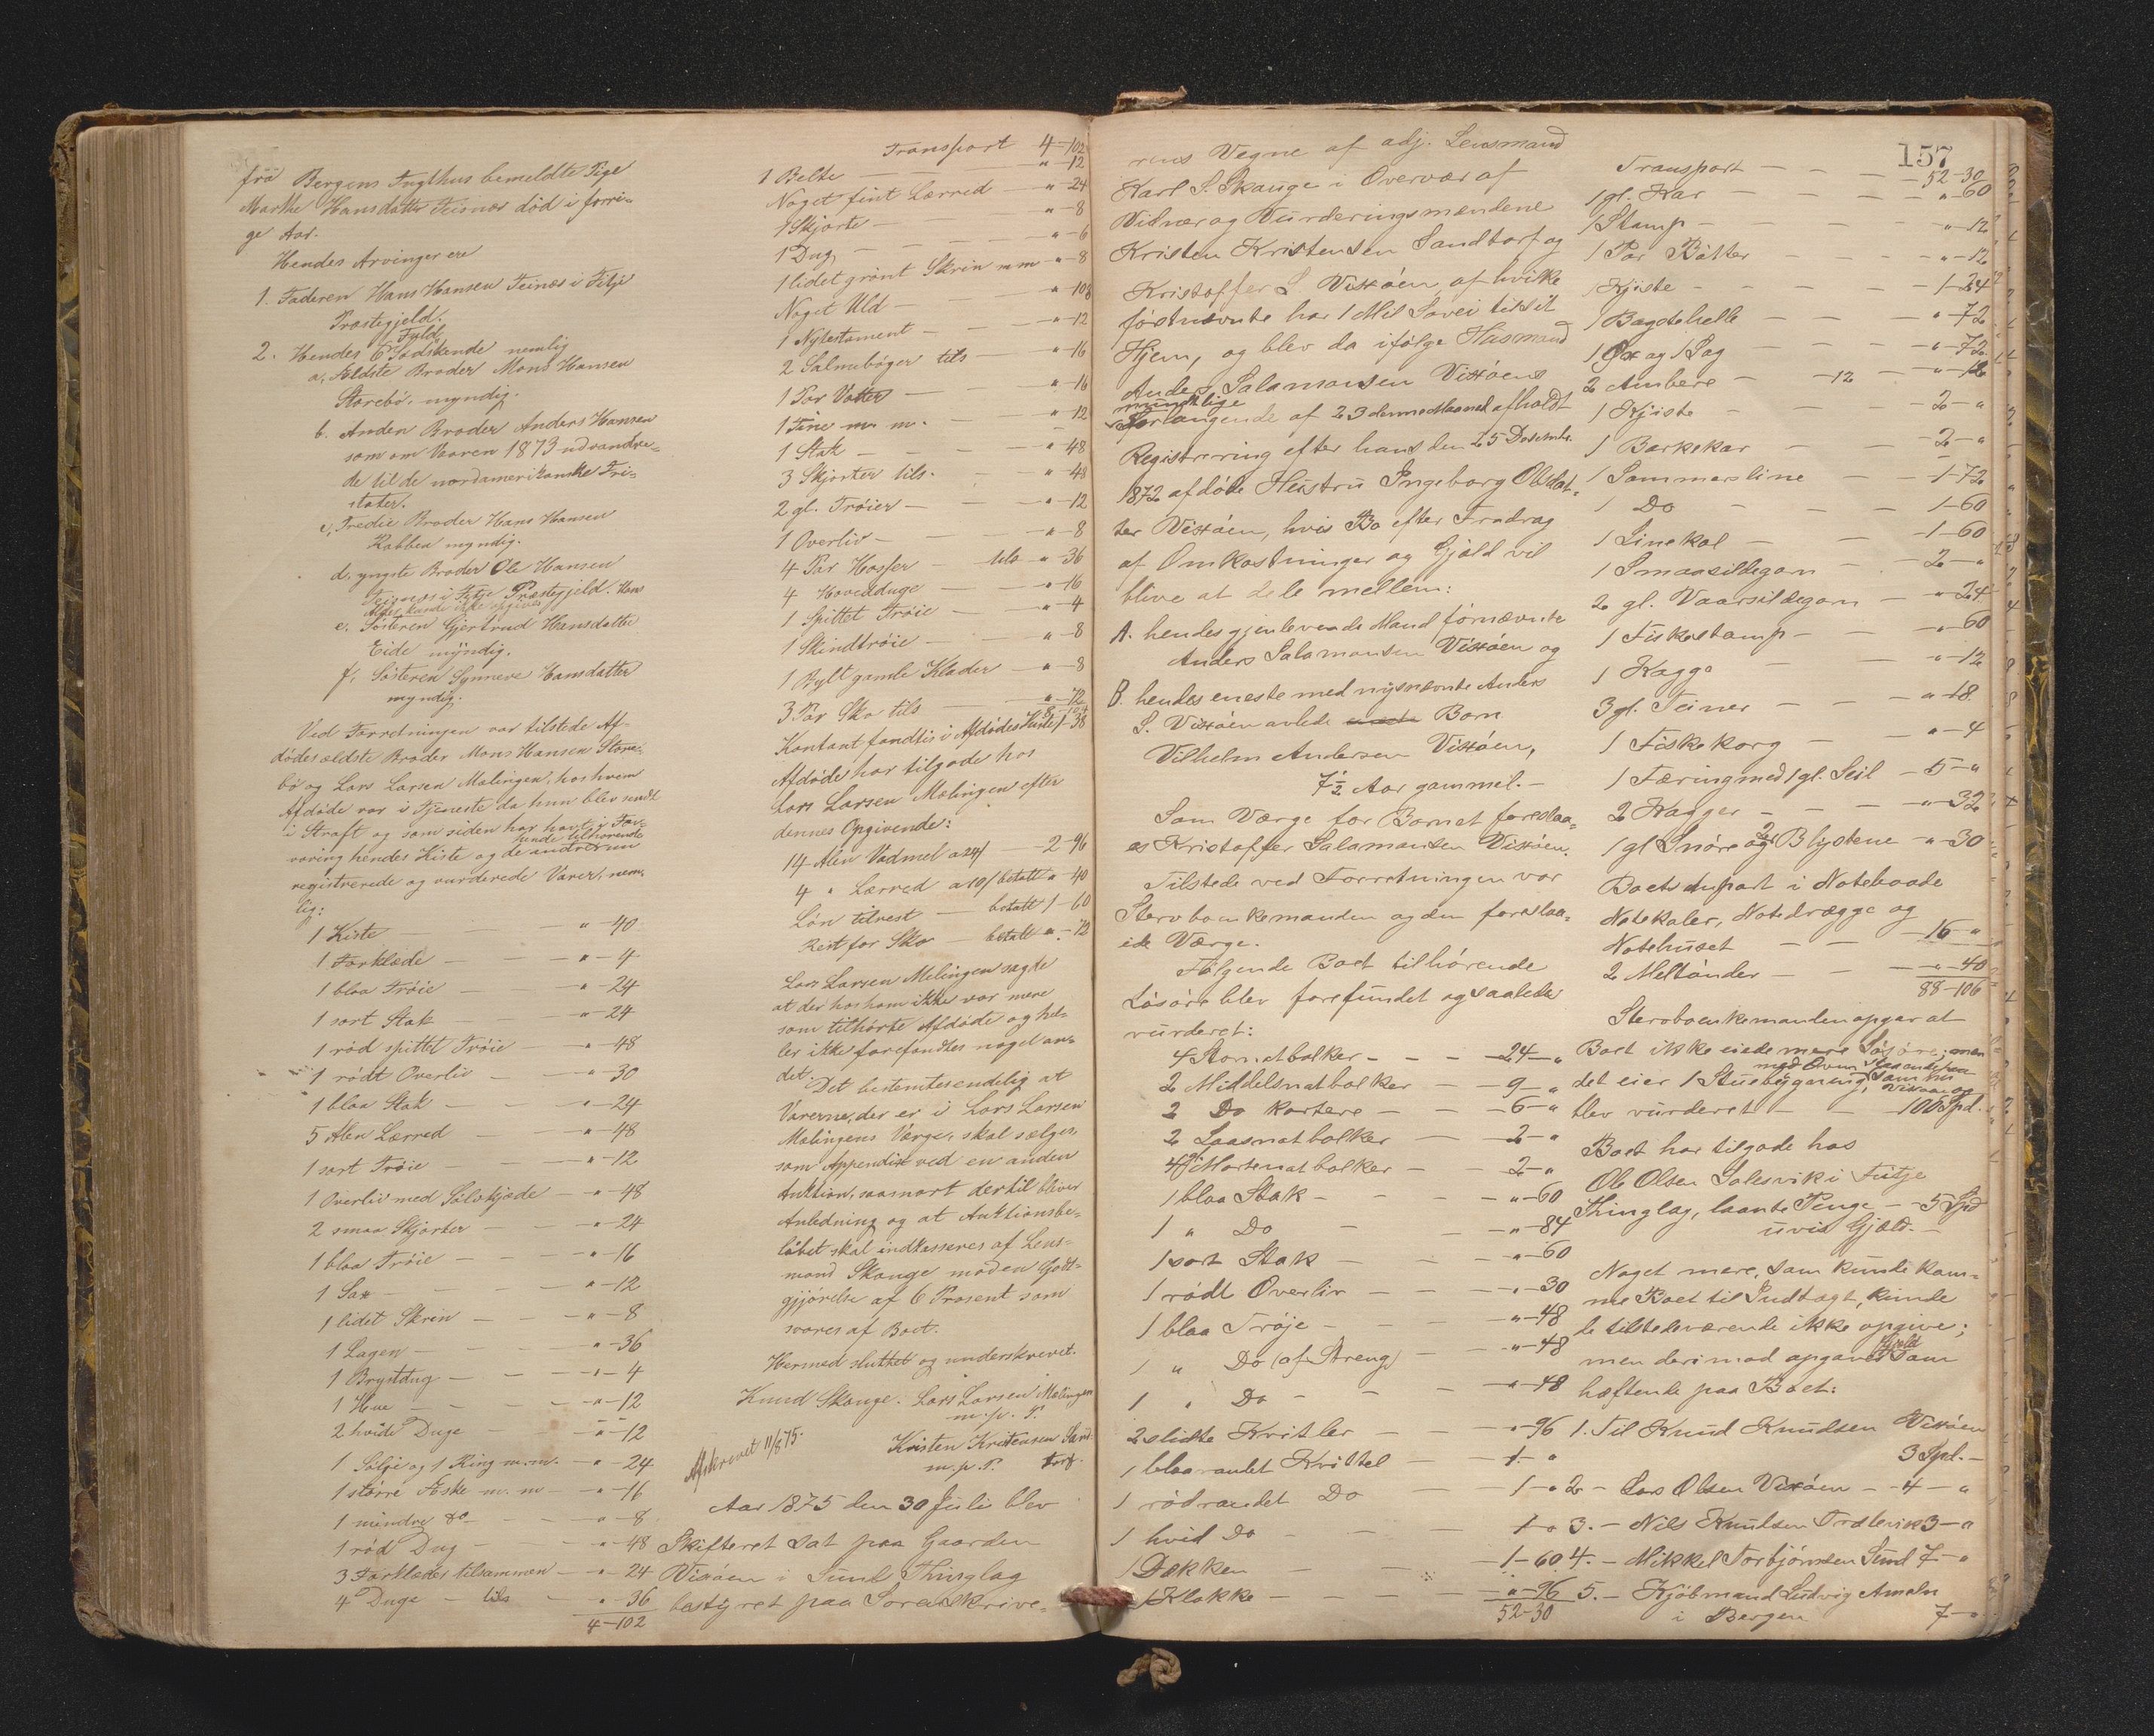 fra Bergens Tugthus bemeldte Pige
Marthe Hansdatter Teinæs død i forri-
ge Aar.
Hendes Arvinger ere
1. Faderen Hans Hansen Teinæs i Fitje
Præstegjeld.
2. Hendes 6 Fuld Sødskende nemlig
a, Ældste Broder Mons Hansen
Storebø, myndig.
b. Anden Broder Anders Hansen
som om Vaaren 1873 udvandre-
de til de nordamerikanske Fri-
stater.
c, Tredie Broder Hans Hansen
Rabben myndig.
d. yngste Broder Ole Hansen
Teinæs i Fitje Præstegjeld. Hans
Alder kunde ikke opgives
e. Søsteren Gjertrud Hansdatter
Eide myndig.
f. Søsteren Synneve Hansdatter
myndig.
Ved Forretningen var tilstede Af-
dødes ældste Broder Mons Hansen Store-
bø og Lars Larsen Malingen, hos hvem
Afdøde var i Tjeneste da hun blev sendt
i Straff og som siden har havt i For-
varing hendes Kiste og de hende tilhørende
registrerede og vurderede Varer, nem-
lig:
1 Kiste — " - 40
1 Forklæde — " - 4
1 blaa Trøie — " - 24
1 sort Stak — " - 24
1 rød spittet Trøie — " - 48
1 rødt Overliv — " - 30
1 blaa Stak — " - 24
5 Alen Lærred — " - 48
1 sort Trøie — " - 12
1 Overliv med Sølvkjæde — " - 48
2 smaa Skjorter — " - 24
1 blaa Trøie — " - 16
1 Sax — " - 12
1 lidet Skrin — " - 8
1 Lagen — " - 36
1 Brystdug — " - 4
1 Hue — " - 12
2 hvide Duge — " - 12
1 Sølje og 1 Ring m.m. — " - 24
1 større Æske m.m — " - 16
1 mindre do — " - 8
1 rød Dug — " - 48
3 Forklæder tilsammen — " - 24
4 Duge — tils — " - 36
4 - 102
Transport 4 - 102
1 Belte — " - 12
Noget fint Lærred — " - 24
1 Skjorte — " - 8
1 Dug — " - 6
1 lidet grønt Skrin m m " - 8
Noget Uld — " - 108
1 Nytestament — " - 12
2 Salmebøger tils — " - 16
1 Par Votter — " - 16
1 Tine m. m. — " - 12
1 Stak — " - 48
3 Skjorter tils. " - 48
2 gl. Trøier — " - 12
1 Overliv — " - 8
4 Par Hoser — tils " - 36
4 Hovedduge — " - 16
1 Spittet Trøie — " - 4
1 Skindtrøie — " - 8
1 Bylt gamle Klæder — " - 8
3 Par Sko tils — " - 72
8 - 104
Kontant fandtis i Afdødes Kiste 1 - 38
Afdøde har tilgode hos
Lars Larsen Malingen efter
dennes Opgivende:
14 Alen Vadmel a 24/ — 2 - 96
4 " Lærred a 10/ betalt " - 40
Løn tilrest — betalt 1 - 60
Rest for Sko — betalt " - 72
Lars Larsen Melingen sagde
at der hos ham ikke var mere
som tilhørte Afdøde og hel-
ler ikke forefandtes noget an-
det.
Det bestemtes endelig at
Varerne, der er i Lars Larsen
Malingens Værge, skal sælges,
som Appendix ved en anden
Auktion, saasnart dertil bliver
Anledning og at Auktionsbe-
løbet skal indkasseres af Lens-
mand Skauge mod en Godt-
gjjørelse af 6 Prosent som
svares af Boet.
Hermed sluttet og underskrevet.
Knud Skauge. Lars Larsen Malingen
m. p. P.
Kristen Kristensen Sand-
m. p. P. torf.
Afskrevet 11/8 75.
Aar 1875 den 30 Juli blev
Skifteret sat paa Gaarden
Vixøen i Sund Thinglag
bestyret paa Sorenskrive-
157
rens Vegne af adj. Lensmand
Karl S. Skauge i Overvær af
Vidner og Vurderingsmændene
Kristen Kristensen Sandtorf og
Kristoffer S. Vixøen, af hvilke
førstnævnte har 1 Mil Søvei til sit
Hjem, og blev da ifølge Husmand
Anders Salamonsen Vixøens
mundtlige
Forlangende af 23 denne Maaned afholdt
Registrering efter hans den 25 Desember
1872 afdøde Hustru Ingeborg Olsdat-
ter Vixøen, hvis Bo efter Fradrag
af Omkostninger og Gjæld vil
blive at dele mellem:
A. hendes gjenlevende Mand førnævnte
Anders Salamonsen Vixøen og
B. hendes eneste med nysnævnte Anders
S. Vixøen avlede Barn
Vilhelm Andersen Vixøen,
7½ Aar gammel. —
Som Værge for Barnet foreslaa-
es Kristoffer Salamonsen Vixøen.
Tilstede ved Forretningen var
Stervboenkemanden og den foreslaa-
ede Værge.
Følgende Boet tilhørende
Løsøre blev forefundet og saaledes
vurderet:
4 Stornatbolker — 24 - "
2 Middelsnatbolker — 9 - "
2 Do kortere — 6 - "
2 Laasnatbolker — 2 - "
4 Mortenatbolker — 2 - "
1 blaa Stak — " - 60
1 " Do — " - 84
1 sort Stak — " - 60
1 rødt Overliv — " - 30
1 blaa Trøje — " - 48
" Do (af Streng) — " - 48
1 " Do — " - 48
2 slidte Kvitler — " - 96
1 blaarandet Kvittel — 1 - "
1 rødrandet Do — 1 - "
1 hvid Do — 1 - "
1 Dækken — 1 - 60
1 Klokke — " - 96
52 - 30
Transport — 52 - 30
1 gl. Kar — " - 60
1 Stamp — " - 12
1 Par Bøtter — " - 12
1 Kjiste — 1 - 24
1 Bagstehelle — " - 72
1 Øx og 1 Sag — " - 72
2 Ambere — 12 — " - 18
1 Kjiste — 2 - "
1 Barkekar — 2 - "
1 Sommersline — 1 - 72
1 Do — 1 - 60
1 Linekol — 1 - 60
1 Smaasildegarn — 2 - "
2 gl. Vaarsildegarn — " - 24
1 Fiskestamp — " - 60
1 Kagge — " - 12
3 gl. Teiner — " - 18
1 Fiskekorg — " - 4
1 Færing med 1 gl. Seil — 5 - "
2 Kagger — " - 32
1 gl Snøre og 2 Blystene — " - 30
Boets anpart i Notebaade
Notekaler, Notedrægge og
Notehuset — 16 - "
2 Meltønder — " - 40
88 - 106
Stervboenkemanden opgav at
Boet ikke eiede mere Løsøre; men
det eier 1 Stuebygning, med Ovn
blev vurderet — 100 Spd.
Boet har tilgode hos
Ole Olsen Salesvik i Fitje
Thinglag, laante Penge — 5 Spd
uvis Gjæld. —
Noget mere, som kunde kom-
me Boet til Indtægt, kunde
de tilstedeværende ikke opgive;
men derimod opgaves Gjæld som
hæftende paa Boet:
1. Til Knud Knudsen Vixøen
3 Spd. —
2 - Lars Olsen Vixøen - 4 - "
3. - Nils Knudsen Trælevik 3 - "
4. - Mikkel Torbjørnsen Sund 7 - "
5. - Kjøbmand Ludvig Amaln
i Bergen 7 - "